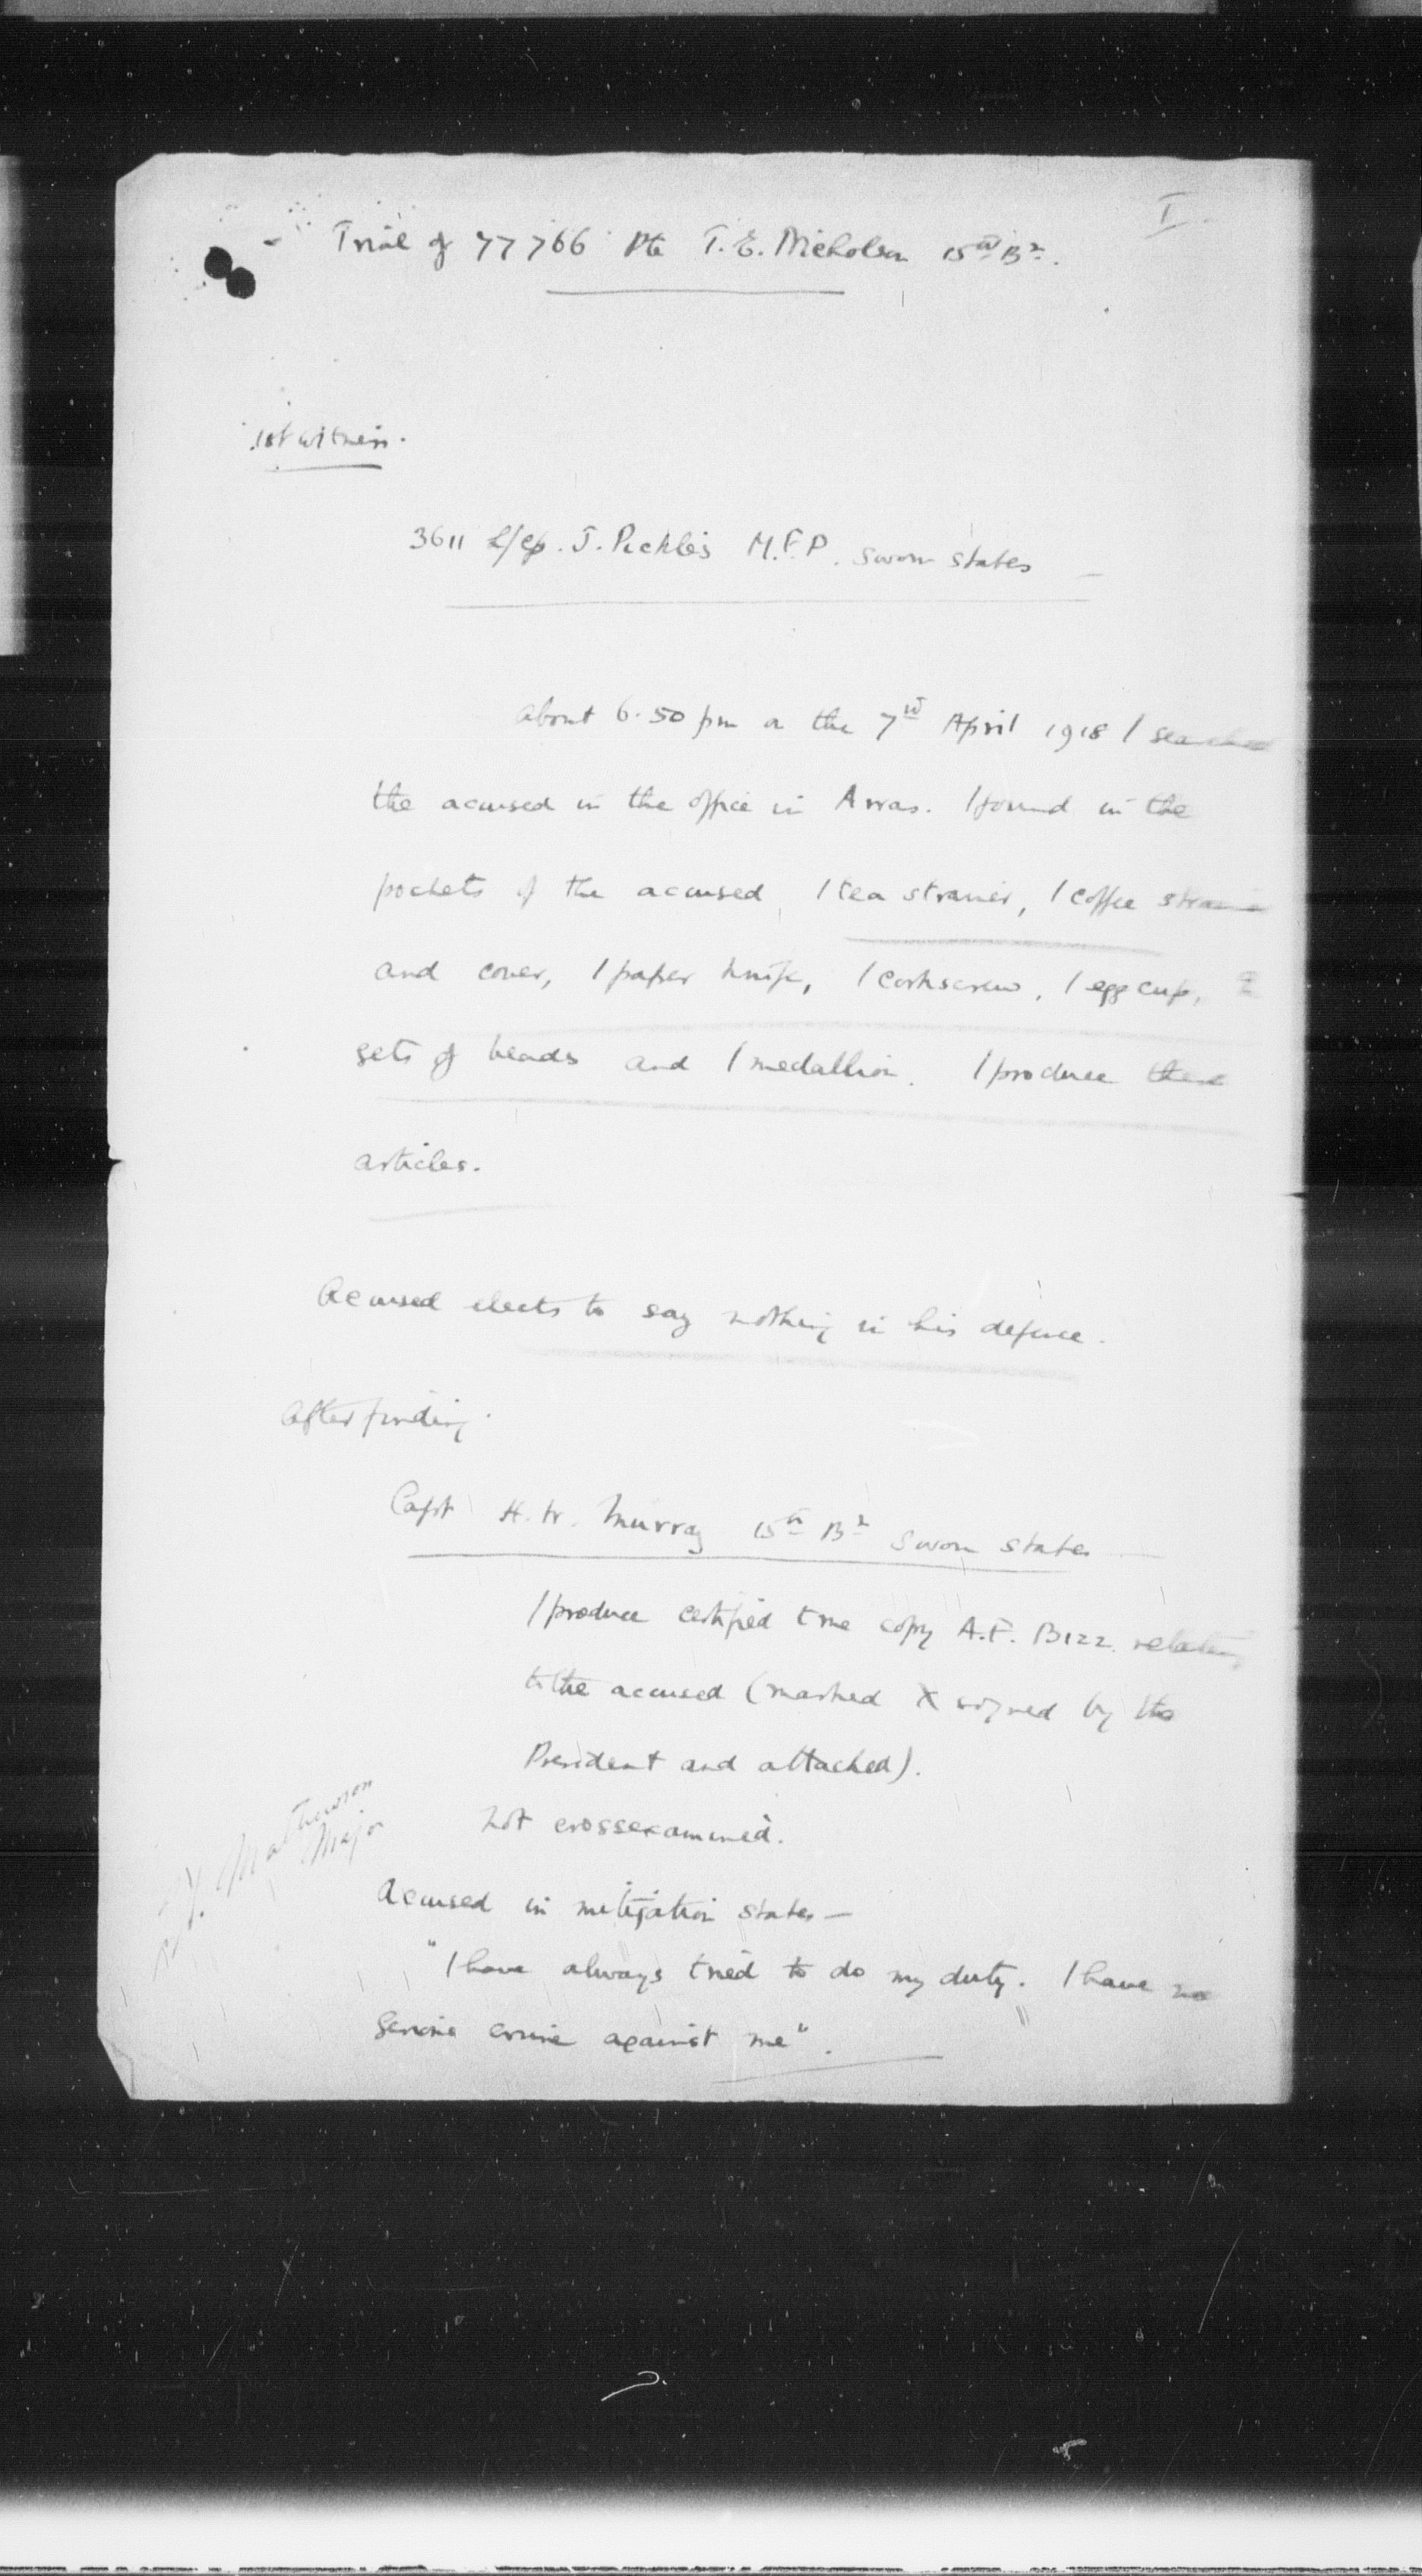 I
Trial of 77766 Pte T. E. Nicholson 15th Bn.
1st witness.
3611 L/Cp. J. Pickles M.F.P. sworn states
About 6.50 pm on the 7th April 1918 I searched
the accused in the office in Arras. I found in the
pockets of the accused, 1 tea strainer, 1 coffee strainer
and cover, 1 paper knife, 1 corkscrew, 1 egg cup, 2
sets of beads and 1 medallion. I produce these
articles.
Accused elects to say nothing in his defence.
After finding.
Capt H. W. Murray 15th Bn sworn states
I produce certified true copy A.F. B122 relating
to the accused (marked X signed by the
President and attached).
Not crossexamined.
Mathewson
Major
Accused in mitigation states —
"I have always tried to do my duty. I have no
serious crime against me".